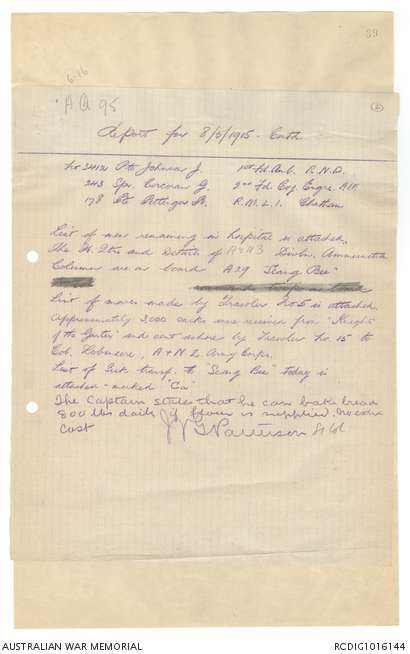 39
6.16
AQ 95
Report for 8/5/1915 - Contd
No 3412 Pte Johnson J. 1st Fd. Amb. R.N.D.
243 Spr. Corcoran J. 2nd Fd Coy Engrs. AIF
178 Pte R.M.L.I. Chatham
List of men remaining in hospital is attached.
The H. Qtrs and Details of R & N3 Divln. Ammunition
Column are on board A 29 "Seang Bee"
List of moves made by Trawler No 5 is attached.
Approximately 3000 sacks were received from "Knight
of the Garter" and sent ashore by Trawler No. 15 to
Col. A & N Z Army Corps.
List of Sick transf. to "Seang Bee" today is
attached - marked "Ca"
The Captain states that he can bake bread
800 lbs daily if flour is supplied. no extra
cost
J G Pattison Lt Col
AUSTRALIAN WAR MEMORIAL
RCDIG1016144